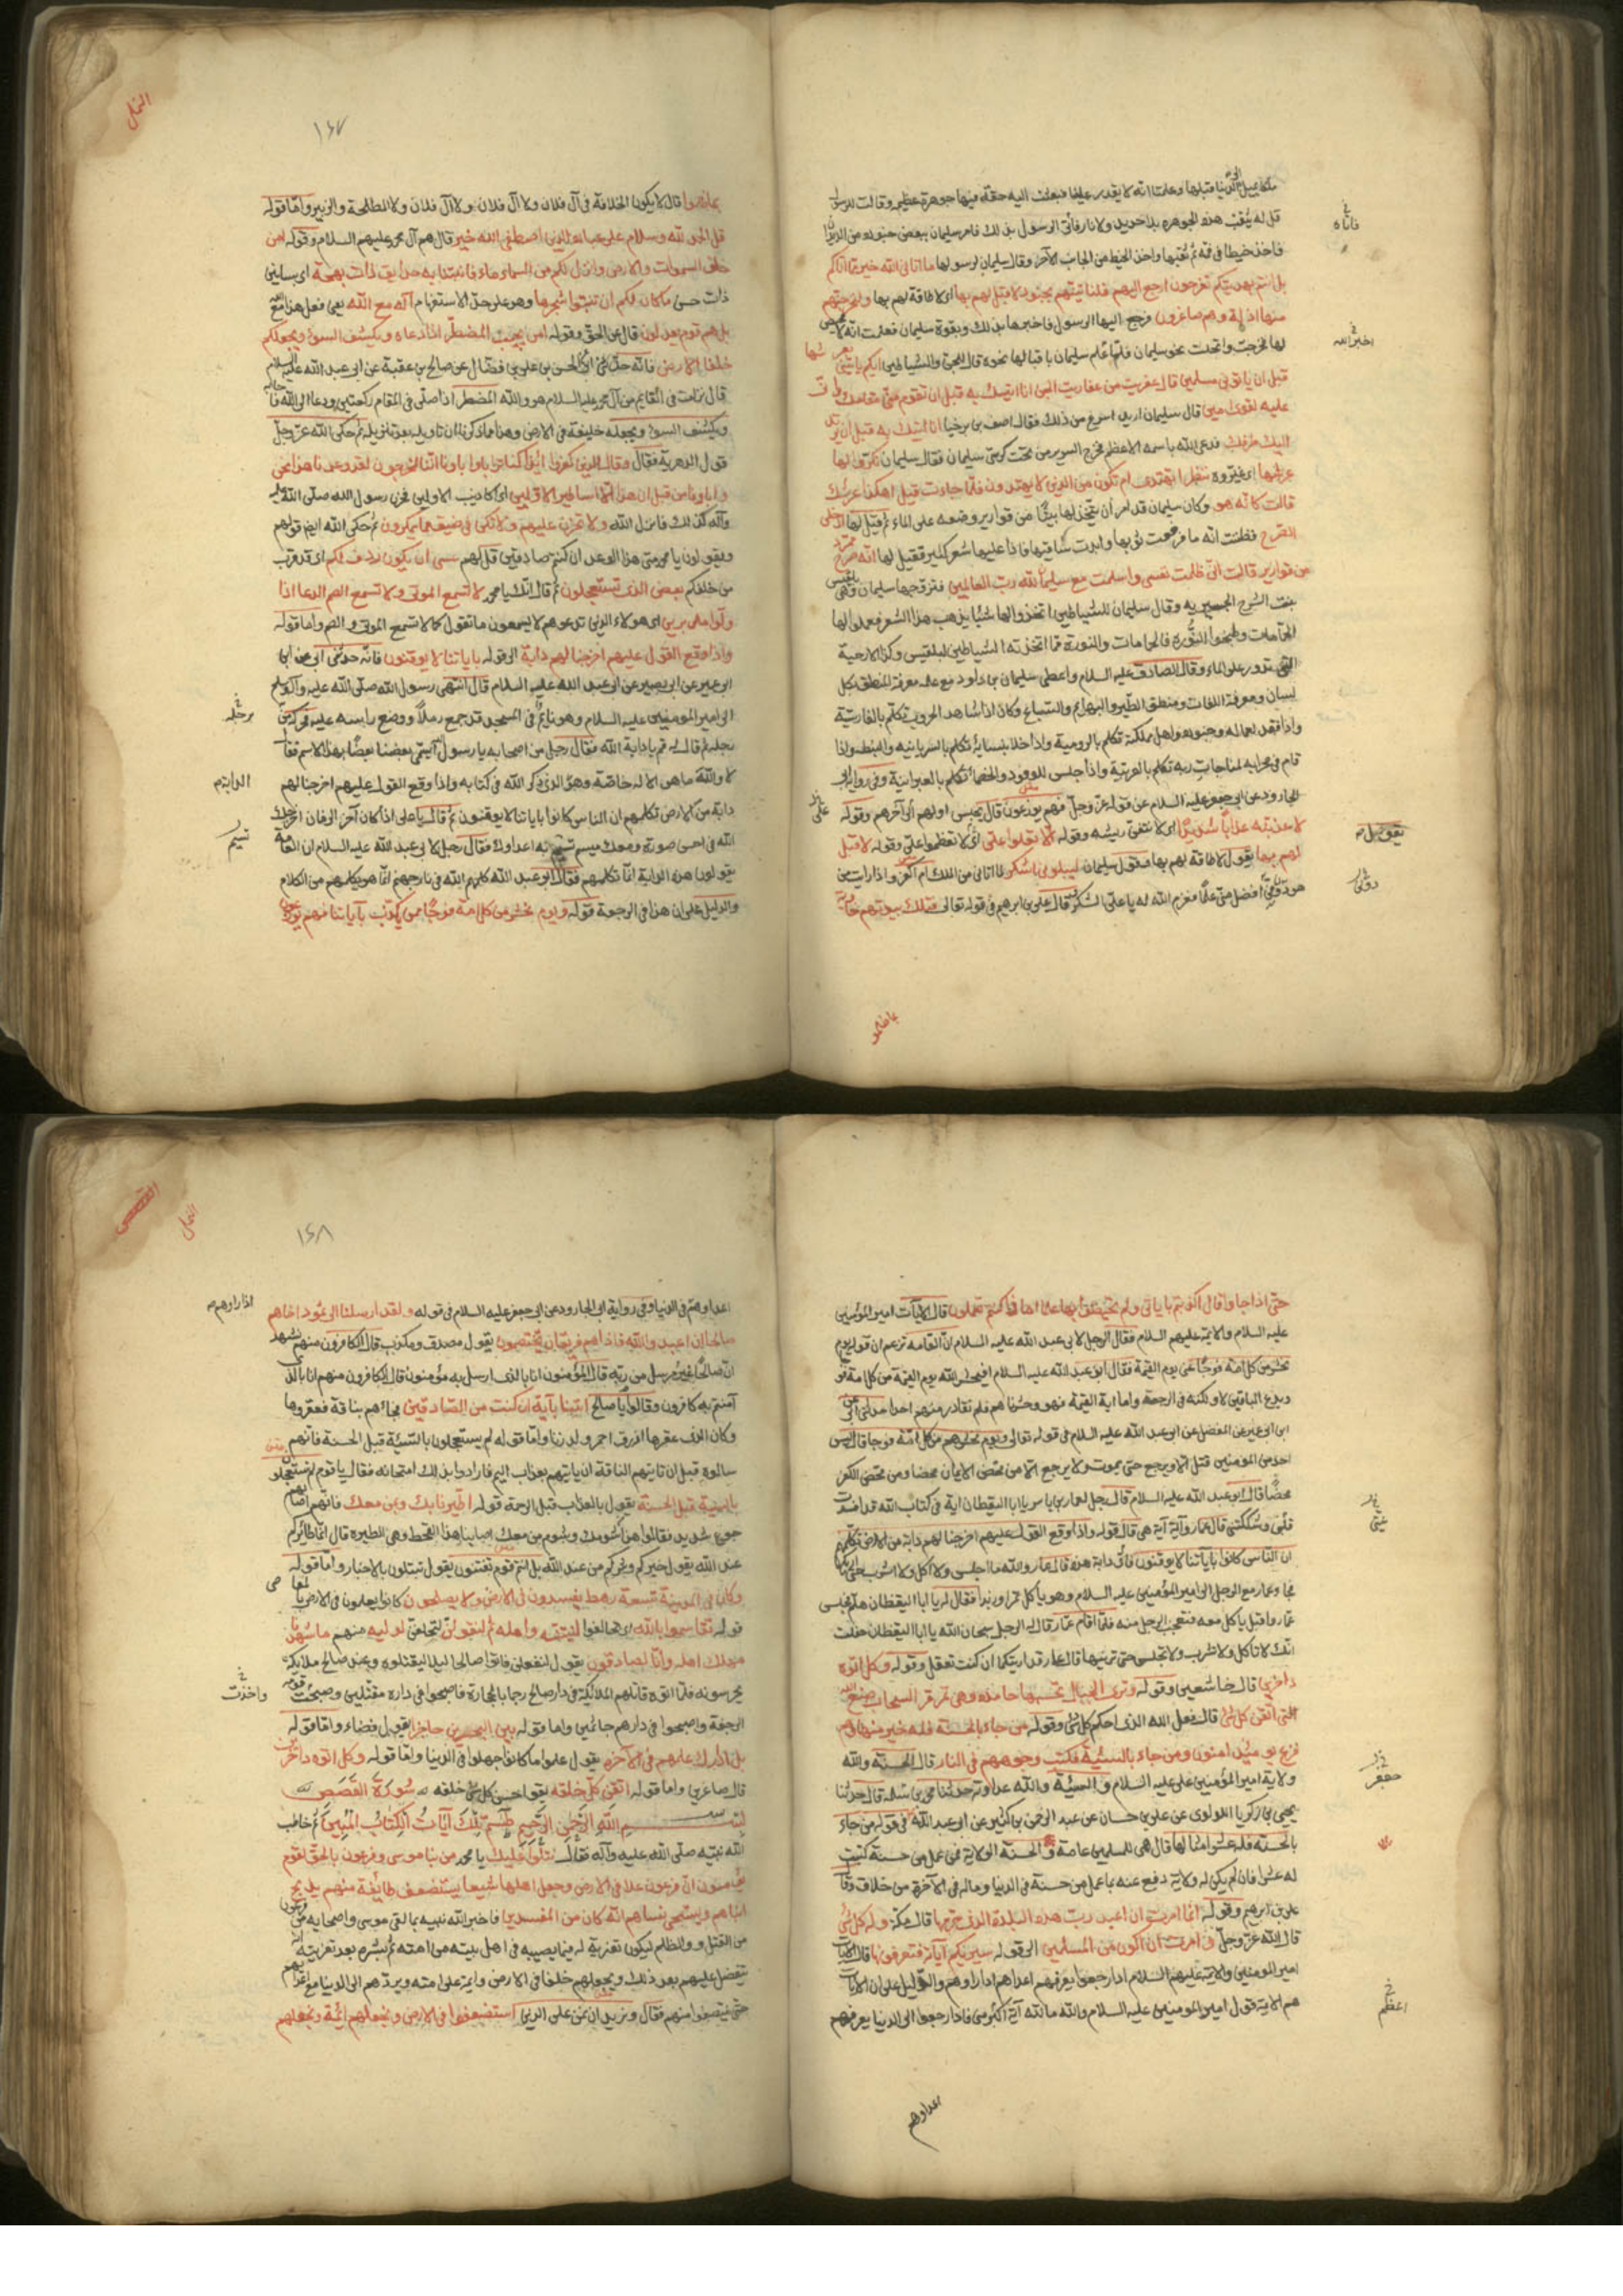 ملكا يميل الى الدنيا قبلها وعلمنا انه لا يقدر علينا فبعثت اليه حقة فيها جوهرة عظيمة وقالت للرسول
قل له يثقب هذه الجوهره بلا حديد ولا نار فاتى الرسول بذلك فامر سليمان ببعض جنوده من الديدان
فاتاه
فاخذ خيطا فى فمه ثم ثقبها واخذ الخيط من الجانب الآخر وقال سليمان لرسولها ما اتانى الله خير مما اتاكم
بل انتم بهديتكم تفرحون ارجع اليهم فلناتينهم بجنود لا قبل لهم بها اى لا طاقة لهم بها ولنخرجنهم
منها اذلة وهم صاغرون فرجع اليها الرسول فاخبرها بذلك وبقوة سليمان فعلمت انه لا محيص
لها فخرجت وارتحلت نحو سليمان فلما علم سليمان باقبالها نحوه قال للجن والشياطين ايكم ياتينى بعرشها
قبل ان ياتونى مسلمين قال عفريت من عفاريت الجن انا اتيتك به قبل ان تقوم من مقامك وانى
عليه لقوى امين قال سليمان اريد اسرع من ذلك فقال اصف بن برخيا انا اتيك به قبل ان يرتد
اليك طرفك فدعى الله باسمه الاعظم فخرج السرير من تحت كرسى سليمان فقال سليمان نكروا لها
عرشها اى غيروه ننظر اتهتدى ام تكون من الذين لا يهتدون فلما جاءت قيل اهكذا عرشك
قالت كانه هو وكان سليمان قد امر أن يتخذ لها بيتًا من قوارير وضعه على الماء ثم قيل لها ادخلى
الصرح فظنت انه ماء فرفعت ثوبها وابدت ساقيها فاذا عليها شعر كثير فقيل لها انه صرح ممرد
من قوارير قالت انى ظلمت نفسى واسلمت مع سليمان لله رب العالمين فتزوجها سليمان وهى بلقيس
بنت الشرح الحميريه وقال سليمان للشياطين اتخذوا لها شيئا يذهب هذا الشعر فعملوا لها
الحمامات وطبخوا النُّورة فالحمامات والنورة مما اتخذته الشياطين لبلقيس وكذا الارحية
التى تدور على الماء وقال الصادق عليه السلام واعطى سليمان بن داود مع علمه معرفة المنطق بكل
لسان ومعرفة اللغات ومنطق الطير والبهائم والسباع وكان اذا شاهد الحروب تكلم بالفارسية
واذا قعد لعماله وجنوده واهل مملكته تكلم بالرومية واذا خلا بنسائه تكلم بالسريانيه والنبطيه واذا
قام فى محرابه لمناجات ربه تكلم بالعربية واذا جلس للوفود والخصماء تكلم بالعبرانية وفى رواية ابى
الجارود عن ابى جعفر عليه السلام عن قوله عز وجل فهم يوزعون قال يحبس اولهم الى آخرهم وقوله
لاعذبنه عذاباً شديدًا اى لانتفن ريشه وقوله الا تعلوا على اى لا تعظموا على وقوله لا قبل
لهم بها يقول لا طاقة لهم بها وقول سليمان ليبلونى ااشكر لما اتانى من الملك ام اكفر واذا رايت من
هو دونى افضل منى علمًا فعزم الله له يا على الشكر قال على بن ابرهيم فى قوله تعالى فتلك بيوتهم خاوية
بما ظلموا
النمل
١٤٧
بما ظلموا قال لا يكون الخلافة فى آل فلان ولا آل فلان ولا آل فلان ولا لطلحة والزبير واما قوله
قل الحمد لله وسلام على عباده الذين اصطفى الله خير قال هم آل محمد عليهم السلام وقوله امن
خلق السموات والارض وانزل لكم من السماء ماء فانبتنا به حدائق ذات بهجة اى بساتين
ذات حسن ما كان لكم ان تنبتوا شجرها وهو على حد الاستفهام أاله مع الله يعنى فعل هذا مع الله
بل هم قوم يعدلون قال عن الحق وقوله امن يجيب المضطر اذا دعاه ويكشف السوء ويجعلكم
خلفا الارض فانه حدثنى ابى عن الحسن بن على بن فضال عن صالح بن عقبة عن ابى عبد الله عليه السلام
قال نزلت فى القايم من آل محمد عليه السلام هو والله المضطر اذا صلى فى المقام ركعتين ودعا الى الله فاجابه
ويكشف السوء ويجعله خليفة فى الارض وهذا مما ذكرنا ان تاويله بعد تنزيله ثم حكى الله عز وجل
قول الدهرية فقال وقال الذين كفروا ائذا كنا ترابا واباونا ائنا لمخرجون لقد وعدنا هذا نحن
واباونا من قبل ان هذا الا اساطير الاولين اى اكاذيب الاولين فحزن رسول الله صلى الله عليه
وآله لذلك فانزل الله ولا تحزن عليهم ولا تكن فى ضيق مما يمكرون ثم حكى الله ايضا قولهم
ويقولون يا محمد متى هذا الوعد ان كنتم صادقين قل لهم عسى ان يكون ردف لكم اى قد قرب
من خلفكم بعض الذى تستعجلون ثم قال انك يا محمد لا تسمع الموتى ولا تسمع الصم الدعا اذا
ولوا مدبرين اى هولاء الذين تدعوهم لا يسمعون ما تقول كما لا تسمع الموتى والصم واما قوله
واذا وقع القول عليهم اخرجنا لهم دابة الى قوله باياتنا لا يوقنون فانه حدثنى ابى عن ابن
ابى عمير عن ابى بصير عن ابى عبد الله عليه السلام قال انتهى رسول الله صلى الله عليه وآله وسلم
الى امير المومنين عليه السلام وهو نائم فى المسجد قد جمع رملاً ووضع راسه عليه فحركه
برجله
برجله ثم قال له قم يا دابة الله فقال رجل من اصحابه يا رسول الله أيسمى بعضنا بعضًا بهذا الاسم فقال
لا والله ما هى الا له خاصة وهو الذى ذكر الله فى كتابه واذا وقع القول عليهم اخرجنا لهم
الدابة
دابة من الارض تكلمهم ان الناس كانوا باياتنا لا يوقنون ثم قال يا على اذا كان آخر الزمان اخرجك
الله فى احسن صورة ومعك ميسم تسم به اعداوك فقال رجل لابى عبد الله عليه السلام ان العامة
تسيم
يقولون هذه الدابة انما تكلمهم فقال ابو عبد الله كلمهم الله فى نار جهنم انما هو يكلمهم من الكلام
والدليل على ان هذا فى الرجعة قوله ويوم نحشر من كل امة فوجًا ممن يكذب بآياتنا فهم يوزعون
حتى اذا جاوا قال اكذبتم باياتى ولم تحيطوا بها علما اماذا كنتم تعملون قال الايات امير المؤمنين
عليه السلام والائمة عليهم السلام فقال الرجل لابى عبد الله عليه السلام ان العامه تزعم ان قوله يوم
نحشر من كل امة فوجًا عنى يوم القيمة فقال ابو عبد الله عليه السلام افيحشر الله يوم القيمة من كل امة فوجا
ويدع الباقين لا ولكنه فى الرجعة واما اية القيمة فهو وحشرناهم فلم نغادر منهم احدا حدثنى ابى عن
ابن ابى عمير عن المفضل عن ابى عبد الله عليه السلام فى قوله تعالى ويوم نحشرهم من كل امة فوجا قال ليس
احد من المومنين قتل الا ويرجع حتى يموت ولا يرجع الا من محض الايمان محضا ومن محض الكفر
محضًا قال ابو عبد الله عليه السلام قال رجل لعمار بن ياسر يا ابا اليقظان اية فى كتاب الله قد افسدت
قلبى وشككتنى قال عمار واية آية هى قال قوله واذا وقع القول عليهم اخرجنا لهم دابة من الارض تكلمهم
ان الناس كانوا باياتنا لا يوقنون فاى دابة هذه قال عمار والله ما اجلس ولا اكل ولا اشرب حتى اريكها
فجا عمار مع الرجل الى امير المؤمنين عليه السلام وهو ياكل تمرا وزبدا فقال له يا ابا اليقظان هلم فجلس
عمار واقبل ياكل معه فتعجب الرجل منه فلما قام عمار قال له الرجل سبحان الله يا ابا اليقظان حلفت
انك لا تاكل ولا تشرب ولا تجلس حتى ترينيها قال عمار قد اريتكها ان كنت تعقل وقوله وكل اتوه
داخرين قال خاشعين وقوله وترى الجبال تحسبها جامدة وهى تمر مر السحاب صنع الله
الذى اتقن كل شى قال فعل الله الذى احكم كل شى وقوله من جاء بالحسنة فله خير منها وهم
فزع يومئذ امنون ومن جاء بالسيئة فكبت وجوههم فى النار قال الحسنة والله
ولاية امير المؤمنين على عليه السلام والسيئة والله عداوته حدثنا محمد بن سلمه قال حدثنا
جعفر
يحيى بن زكريا اللولوى عن على بن حسان عن عبد الرحمن بن كثير عن ابى عبد الله فى قوله من جاء
بالحسنة فله عشر امثالها قال هى للمسلمين عامة والحسنة الولاية فمن عمل من حسنة كتبت
له عشرا فان لم يكن له ولاية دفع عنه بما عمل من حسنة فى الدنيا وماله فى الآخرة من خلاق وقال
على بن ابرهيم وقوله انما امرت ان اعبد رب هذه البلدة الذى حرمها قال مكة وله كل شى
قال الله عز وجل وامرت ان اكون من المسلمين الى قوله سيريكم آياته فتعرفونها قال الايات
امير المومنين والائمة عليهم السلام اذا رجعوا يعرفهم اعداهم اذا راوهم والدليل على ان الايات
هم الائمة قول امير المومنين عليه السلام والله ما لله آية اكبر منى فاذا رجعوا الى الدنيا يعرفهم
اعظم
اعداوهم
القصص
النمل
١٤٨
اعداوهم فى الدنيا وفى رواية ابى الجارود عن ابى جعفر عليه السلام فى قوله ولقد ارسلنا الى ثمود اخاهم
اذا راوهم
صالحا ان اعبدوا الله فاذا هم فريقان يختصمون يقول مصدق ومكذب قال الكافرون منهم تشهد
ان صالحًا غير مرسل من ربه قال المؤمنون انا بالذى ارسل به مؤمنون قال الكافرون منهم انا بالذى
آمنتم به كافرون وقالوا يا صالح ائتنا بآية ان كنت من الصادقين فجاءهم بناقة فعقروها
وكان الذى عقرها ازرق احمر ولد زنا واما قوله لم يستعجلون بالسيئة قبل الحسنة فانهم
سالوه قبل ان تاتيهم الناقة ان ياتيهم بعذاب اليم فارادوا بذلك امتحانه فقال يا قوم لم تستعجلون
بالسيئة قبل الحسنة يقول بالعذاب قبل الرحمة قوله اطيرنا بك وبمن معك فانهم اصابهم
جوع شديد فقالوا هذا شومك وشوم من معك اصابنا هذا القحط وهى الطيره قال انما طائركم
عند الله يقول خيركم وشركم من عند الله بل انتم قوم تفتنون يقول تبتلون بالاختبار واما قوله
وكان فى المدينة تسعة رهط يفسدون فى الارض ولا يصلحون كانوا يعملون فى الارض بالمعاصى
قوله تقاسموا بالله اى تحالفوا لنبيتنه واهله ثم لنقولن لنحلفن لوليه منهم ما شهدنا
مهلك اهله وانا لصادقون يقول لنفعلن فاتوا صالحا ليلا ليقتلوه وعند صالح ملائكة
يحرسونه فلما اتوه قاتلهم الملائكة فى دار صالح رجما بالحجارة فاصبحوا فى داره مقتلين وصبحت قومه
واخذت
الرجفة واصبحوا فى دارهم جاثمين واما قوله بين البحرين حاجزا يقول فضاء واما قوله
بل ادارك علمهم فى الآخرة يقول علموا ما كانوا جهلوا فى الدنيا واما قوله وكل اتوه داخرين
قال صاغرين واما قوله اتقن كل خلقه يقول احسن كل شى خلقه سُورَة القَصَص
بسم الله الرحمن الرحيم طسم تِلْكَ آيَاتُ الْكِتَابِ الْمُبِين ثم خاطب
الله نبيه صلى الله عليه وآله فقال نتلوا عليك يا محمد من نبا موسى وفرعون بالحق لقوم
يؤمنون ان فرعون علا فى الارض وجعل اهلها شيعا يستضعف طايفة منهم يذبح
ابناهم ويستحى نساهم انه كان من المفسدين فاخبر الله نبيه بما لقى موسى واصحابه من فرعون
من القتل والظلم ليكون تعزية له فيما يصيبه فى اهل بيته من امته ثم بشره بعد تعزيته انه
يتفضل عليهم بعد ذلك ويجعلهم خلفا فى الارض وائمة على امته ويردهم الى الدنيا مع اعدائهم
حتى ينتصفوا منهم فقال ونريد ان نمن على الذين استضعفوا فى الارض ونجعلهم ائمة ونجعلهم